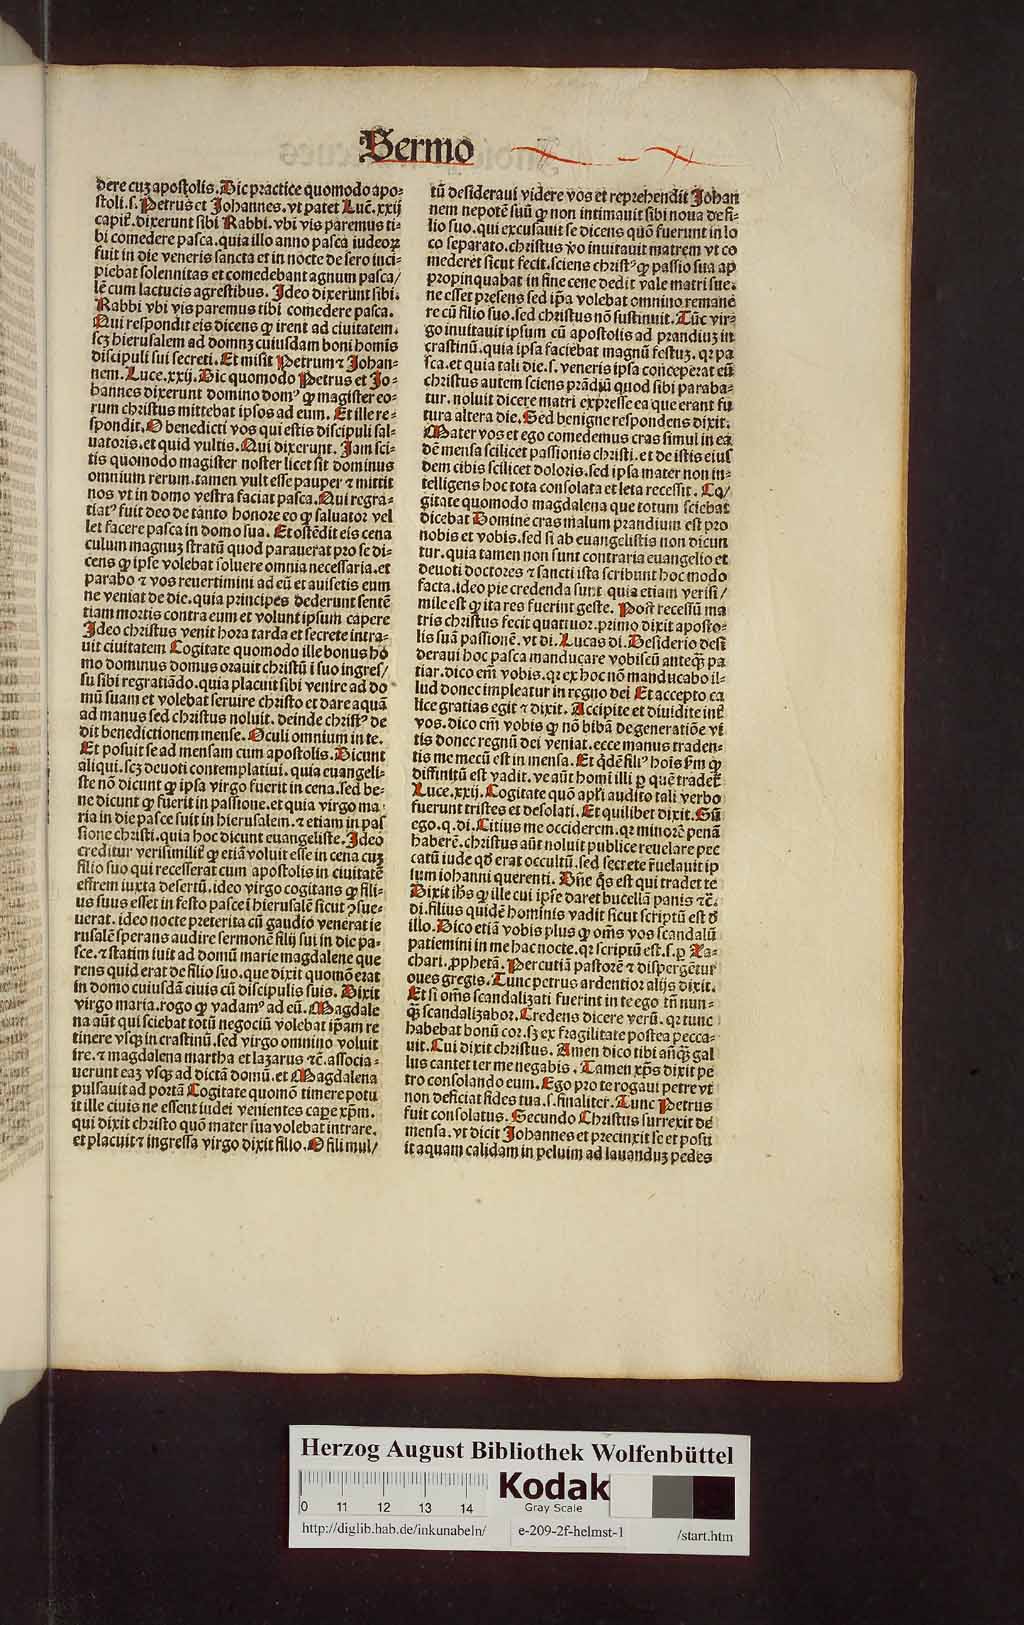 Sermo
dere cuꝫ apostolis. Dic practice quomodo apo⸗
stoli.s. Petrus et Johannes. vt patet Luc̄. xxij
capit̄. dixerunt sibi Rabbi. vbi vis paremus ti⸗
bi comedere pasca. quia illo anno pasca iudeoꝝ
fuit in die veneris sancta et in nocte de sero inci⸗
piebat solennitas et comedebant agnum pasca/
lē cum lactucis agrestibus. Ideo dixerunt sibi.
Rabbi vbi vis paremus tibi comedere pasca.
Qui respondit eis dicens ꝙ irent ad ciuitatem.
scꝫ hierusalem ad domnꝫ cuiusdam boni homis
discipuli sui secreti. Et misit Petrum ⁊ Johan⸗
nem. Luce. xxij. Dic quomodo Petrus et Jo⸗
hannes dixerunt domino domꝰ ꝙ magister eo⸗
rum christus mittebat ipsos ad eum. Et ille re⸗
spondit. O benedicti vos qui estis discipuli sal⸗
uatoris. et quid vultis. Qui dixerunt. Jam sci⸗
tis quomodo magister noster licet sit dominus
omnium rerum. tamen vult esse pauper ⁊ mittit
nos vt in domo vestra faciat pasca. Qui regra⸗
tiatꝰ fuit deo de tanto honore eo ꝙ saluator vel
let facere pasca in domo sua. Et ostēdit eis cena
culum magnuꝫ stratū quod parauerat pro se di⸗
cens ꝙ ipse volebat soluere omnia necessaria. et
parabo ⁊ vos reuertimini ad eū et auisetis eum
ne veniat de die. quia principes dederunt sentē
tiam mortis contra eum et volunt ipsum capere
Ideo christus venit hora tarda et secrete intra⸗
uit ciuitatem Cogitate quomodo ille bonus ho
mo dominus domus orauit christū i suo ingres/
su sibi regratiādo. quia placuit sibi venire ad do
mū suam et volebat seruire christo et dare aquā
ad manus sed christus noluit. deinde christꝰ de
dit benedictionem mense. Oculi omnium in te.
Et posuit se ad mensam cum apostolis. Dicunt
aliqui. scꝫ deuoti contemplatiui. quia euangeli⸗
ste nō dicunt ꝙ ipsa virgo fuerit in cena. sed be⸗
ne dicunt ꝙ fuerit in passione. et quia virgo ma
ria in die pasce fuit in hierusalem. ⁊ etiam in pas
sione christi. quia hoc dicunt euangeliste. Ideo
creditur verisimilit̄ ꝙ etiā voluit esse in cena cuꝫ
filio suo qui recesserat cum apostolis in ciuitatē
effrem iuxta desertū. ideo virgo cogitans ꝙ fili⸗
us suus esset in festo pasce i hierusalē sicut ꝯsue⸗
uerat. ideo nocte preterita cū gaudio venerat ie
rusalē sperans audire sermonē filij sui in die pa⸗
sce. ⁊ statim iuit ad domū marie magdalene que
rens quid erat de filio suo. que dixit quomō erat
in domo cuiusdā ciuis cū discipulis suis. Dixit
virgo maria. rogo ꝙ vadamꝰ ad eū. Magdale
na aūt qui sciebat totū negociū volebat ip̄am re
tinere vsqꝫ in crastinū. sed virgo omnino voluit
ire. ⁊ magdalena martha et lazarus ⁊c̄. associa⸗
uerunt eaꝫ vsqꝫ ad dictā domū. et Magdalena
pulsauit ad portā Cogitate quomō timere potu
it ille ciuis ne essent iudei venientes capere xp̄m.
qui dixit christo quō mater sua volebat intrare.
et placuit ⁊ ingressa virgo dixit filio. O fili mul/
tū desideraui videre vos et reprehendit Johan
nem nepotē suū ꝙ non intimauit sibi noua de fi⸗
lio suo. qui excusauit se dicens quō fuerunt in lo
co separato. christus v̄o inuitauit matrem vt co
mederet sicut fecit. sciens christꝰ ꝙ passio sua ap
propinquabat in fine cene dedit vale matri sue.
ne esset presens sed ip̄a volebat omnino remane
re cū filio suo. sed christus nō sustinuit. Tūc vir⸗
go inuitauit ipsum cū apostolis ad prandiuꝫ in
crastinū. quia ipsa faciebat magnū festuꝫ. qꝛ pa
sca. et quia tali die.s. veneris ipsa conceperat eū
christus autem sciens prādiū quod sibi paraba⸗
tur. noluit dicere matri expresse ea que erant fu
tura altera die. Sed benigne respondens dixit.
Mater vos et ego comedemus cras simul in ea
dē mensa scilicet passionis christi. et de istis eius
dem cibis scilicet doloris. sed ipsa mater non in⸗
telligens hoc tota consolata et leta recessit. Co/
gitate quomodo magdalena que totum sciebat
dicebat Domine cras malum prandium est pro
nobis et vobis. sed si ab euangelistis non dicun
tur. quia tamen non sunt contraria euangelio et
deuoti doctores ⁊ sancti ista scribunt hoc modo
facta. ideo pie credenda sunt quia etiam verisi/
mile est ꝙ ita res fuerint geste. Post recessū ma
tris christus fecit quattuor. primo dixit aposto⸗
lis suā passionē. vt di. Lucas di. Desiderio desi
deraui hoc pasca manducare vobiscū anteqꝫ pa
tiar. dico em̄ vobis. qꝛ ex hoc nō manducabo il⸗
lud donec impleatur in regno dei Et accepto ca
lice gratias egit ⁊ dixit. Accipite et diuidite int̄
vos. dico em̄ vobis ꝙ nō bibā de generatiōe vi
tis donec regnū dei veniat. ecce manus traden⸗
tis me mecū est in mensa. Et qd̄ē filiꝰ hoīs ẜm ꝙ
diffinitū est vadit. ve aūt homi illi ꝑ quē tradet̄
Luce. xxij. Cogitate quō apl̄i audito tali verbo
fuerunt tristes et desolati. Et quilibet dixit. Sū
ego. q. di. Citius me occiderem. qꝛ minorē penā
haberē. christus aūt noluit publice reuelare pec
catū iude qd̄ erat occultū. sed secrete r̄uelauit ip
sum iohanni querenti. Dn̄e q̄s est qui tradet te
Dixit ih̄s ꝙ ille cui ipse daret bucellā panis ⁊c̄.
di. filius quidē hominis vadit sicut scriptū est d̄
illo. Dico etiā vobis plus ꝙ om̄s vos scandalū
patiemini in me hac nocte. qꝛ scriptū est.s.ꝑ Za⸗
chari. ꝓphetā. Percutiā pastorē ⁊ dispergetur
oues gregis. Tunc petrus ardentior alijs dixit.
Et si om̄s scandalizati fuerint in te ego tn̄ nun⸗
qꝫ scandalizabor. Credens dicere verū. qꝛ tunc
habebat bonū cor. sꝫ ex fragilitate postea pecca⸗
uit. Cui dixit christus. Amen dico tibi an̄qꝫ gal
lus cantet ter me negabis. Tamen xp̄s dixit pe
tro consolando eum. Ego pro te rogaui petre vt
non deficiat fides tua.s. finaliter. Tunc Petrus
fuit consolatus. Secundo Christus surrexit de
mensa. vt dicit Johannes et precinxit se et posu
it aquam calidam in peluim ad lauanduꝫ pedes
Herzog August Bibliothek Wolfenbüttel
0 11 12 13 14
Kodak
Gray Scale
http://diglib.hab.de/inkunabeln/ e-209-2f-helmst-1 /start.htm